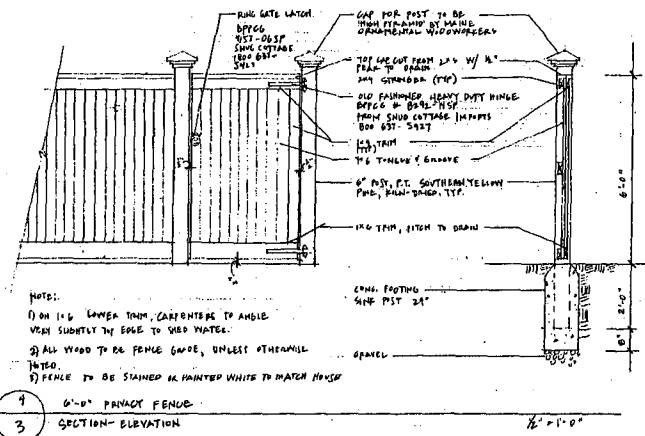 RING GATE LATCH
BPPCG
SNUG COTTAGE
1800 637-
5427
CAP FOR POST TO BE
"HIGH PYRAMID" BY MAINE
ORNAMENTAL WOODWORKERS
TOP CAP CUT FROM 2x5 W/ ½"
PEAK TO DRAIN
2x4 STRINGER (TYP)
OLD FASHIONED HEAVY DUTY HINGE
BPPCG # 8292-HSP
FROM SNUG COTTAGE IMPORTS
800 637-5427
1x6 TRIM
(TYP)
1x6 TONGUE & GROOVE
6" POST, P.T. SOUTHERN YELLOW
PINE, KILN-DRIED, TYP.
1x6 TRIM, PITCH TO DRAIN
CONC. FOOTING
SINK POST 24"
GRAVEL
6'-0"
2'-0"
8"
NOTE:
1) ON 1x6 LOWER TRIM, CARPENTERS TO ANGLE
VERY SLIGHTLY TOP EDGE TO SHED WATER.
2) ALL WOOD TO BE FENCE GRADE, UNLESS OTHERWISE
NOTED.
3) FENCE TO BE STAINED OR PAINTED WHITE TO MATCH HOUSE
4
3
6'-0" PRIVACY FENCE
SECTION-ELEVATION
½" = 1'-0"